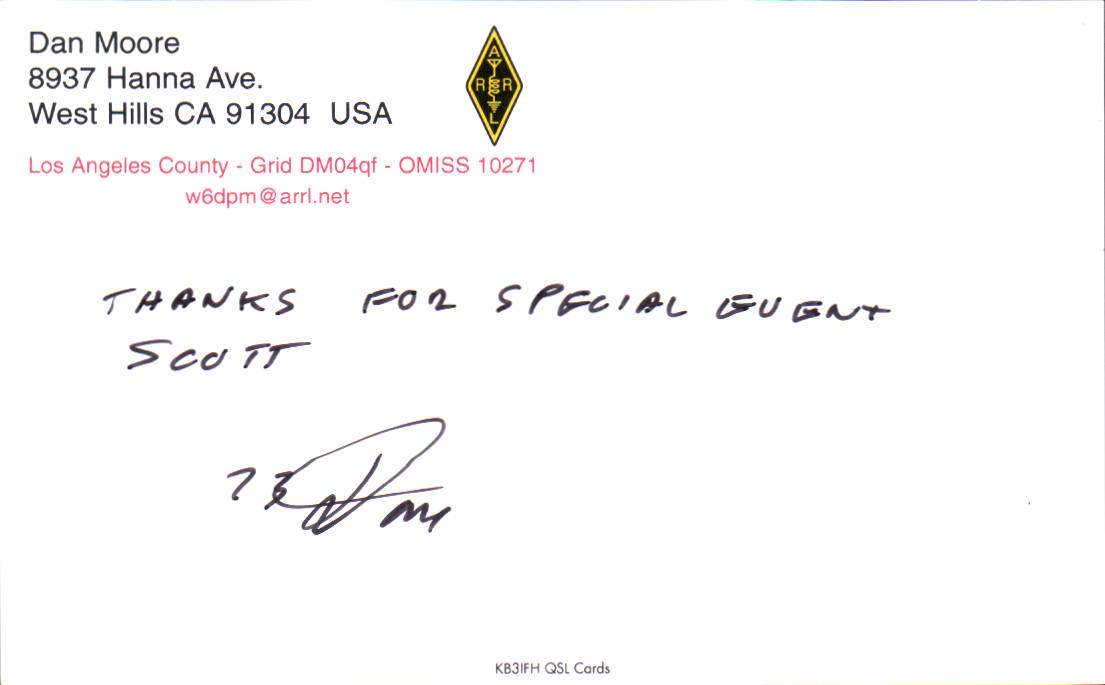 Dan Moore
8937 Hanna Ave.
West Hills CA 91304 USA
ARRL
Los Angeles County - Grid DM04qf - OMISS 10271
w6dpm@arrl.net
THANKS FOR SPECIAL EVENT
SCOTT
73 Dan
KB3IFH QSL Cards